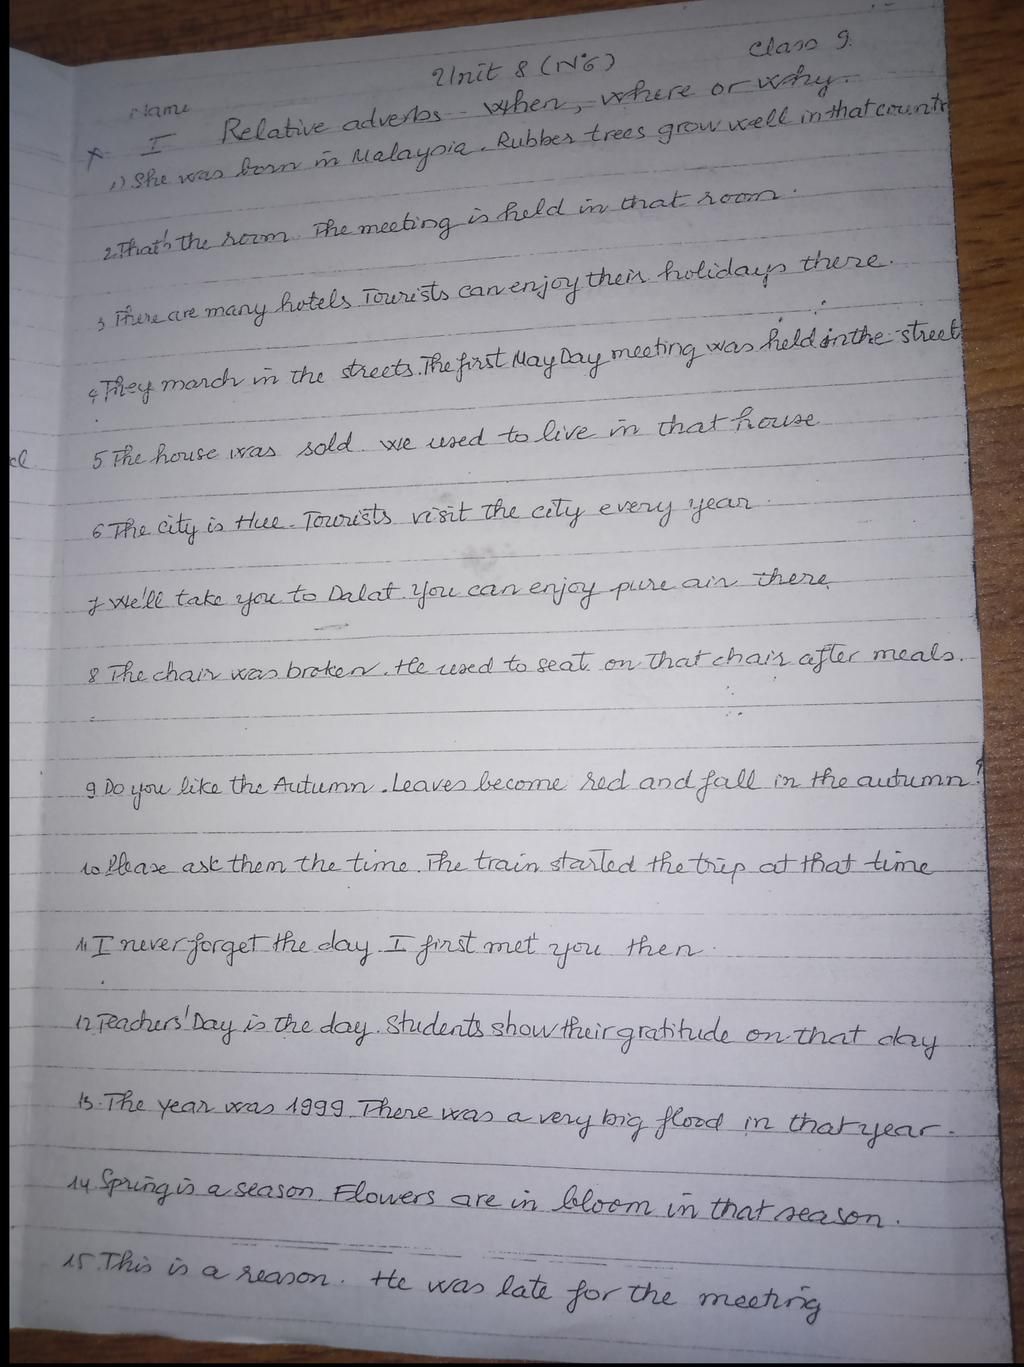 Unit 8 (N°6)
Class 9.
Name
I Relative adverbs - When, where or why.
1) She was born in Malaysia. Rubber trees grow well in that countr
2. That's the room. The meeting is held in that room.
3 There are many hotels Tourists can enjoy their holidays there.
4 They march in the streets. The first May Day meeting was held in the street
5 The house was sold. we used to live in that house
6 The city is Hue. Tourists visit the city every year.
7 We'll take you to Dalat. You can enjoy pure air there.
8 The chair was broken. He used to seat on that chair after meals.
9 Do you like the Autumn. Leaves become red and fall in the autumn?
10 Please ask them the time. The train started the trip at that time
11 I never forget the day. I first met you then.
12 Teachers' Day is the day. Students show their gratitude on that day
13. The year was 1999. There was a very big flood in that year.
14 Spring is a season. Flowers are in bloom in that season.
15. This is a reason. He was late for the meeting